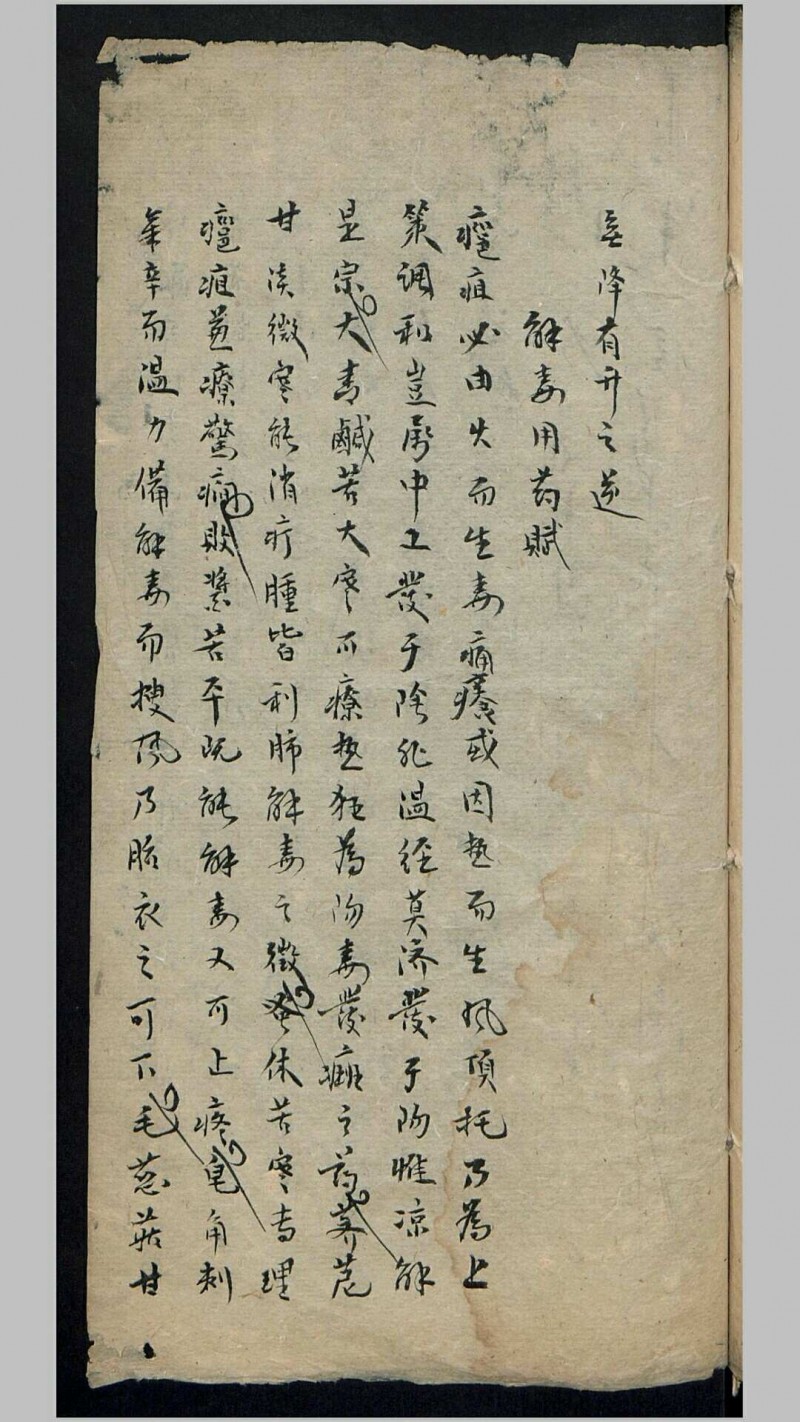 無降有升之逆
解毒用药賦
癰疽必由火而生毒痛癢或因热而生風頂托乃為上
策調和豈屬中工發于陰非温經莫济發于阳惟凉解
是宗大青鹹苦大寒而療热狂為阳毒發癍之药荠苨
甘淡微寒能消疔腫皆利肺解毒之徵蚤休苦寒专理
癰疽并療驚癇敗醬苦平既能解毒又可止疼皂角刺
辛而温力備解毒而搜风乃胎衣之可下毛慈菇甘